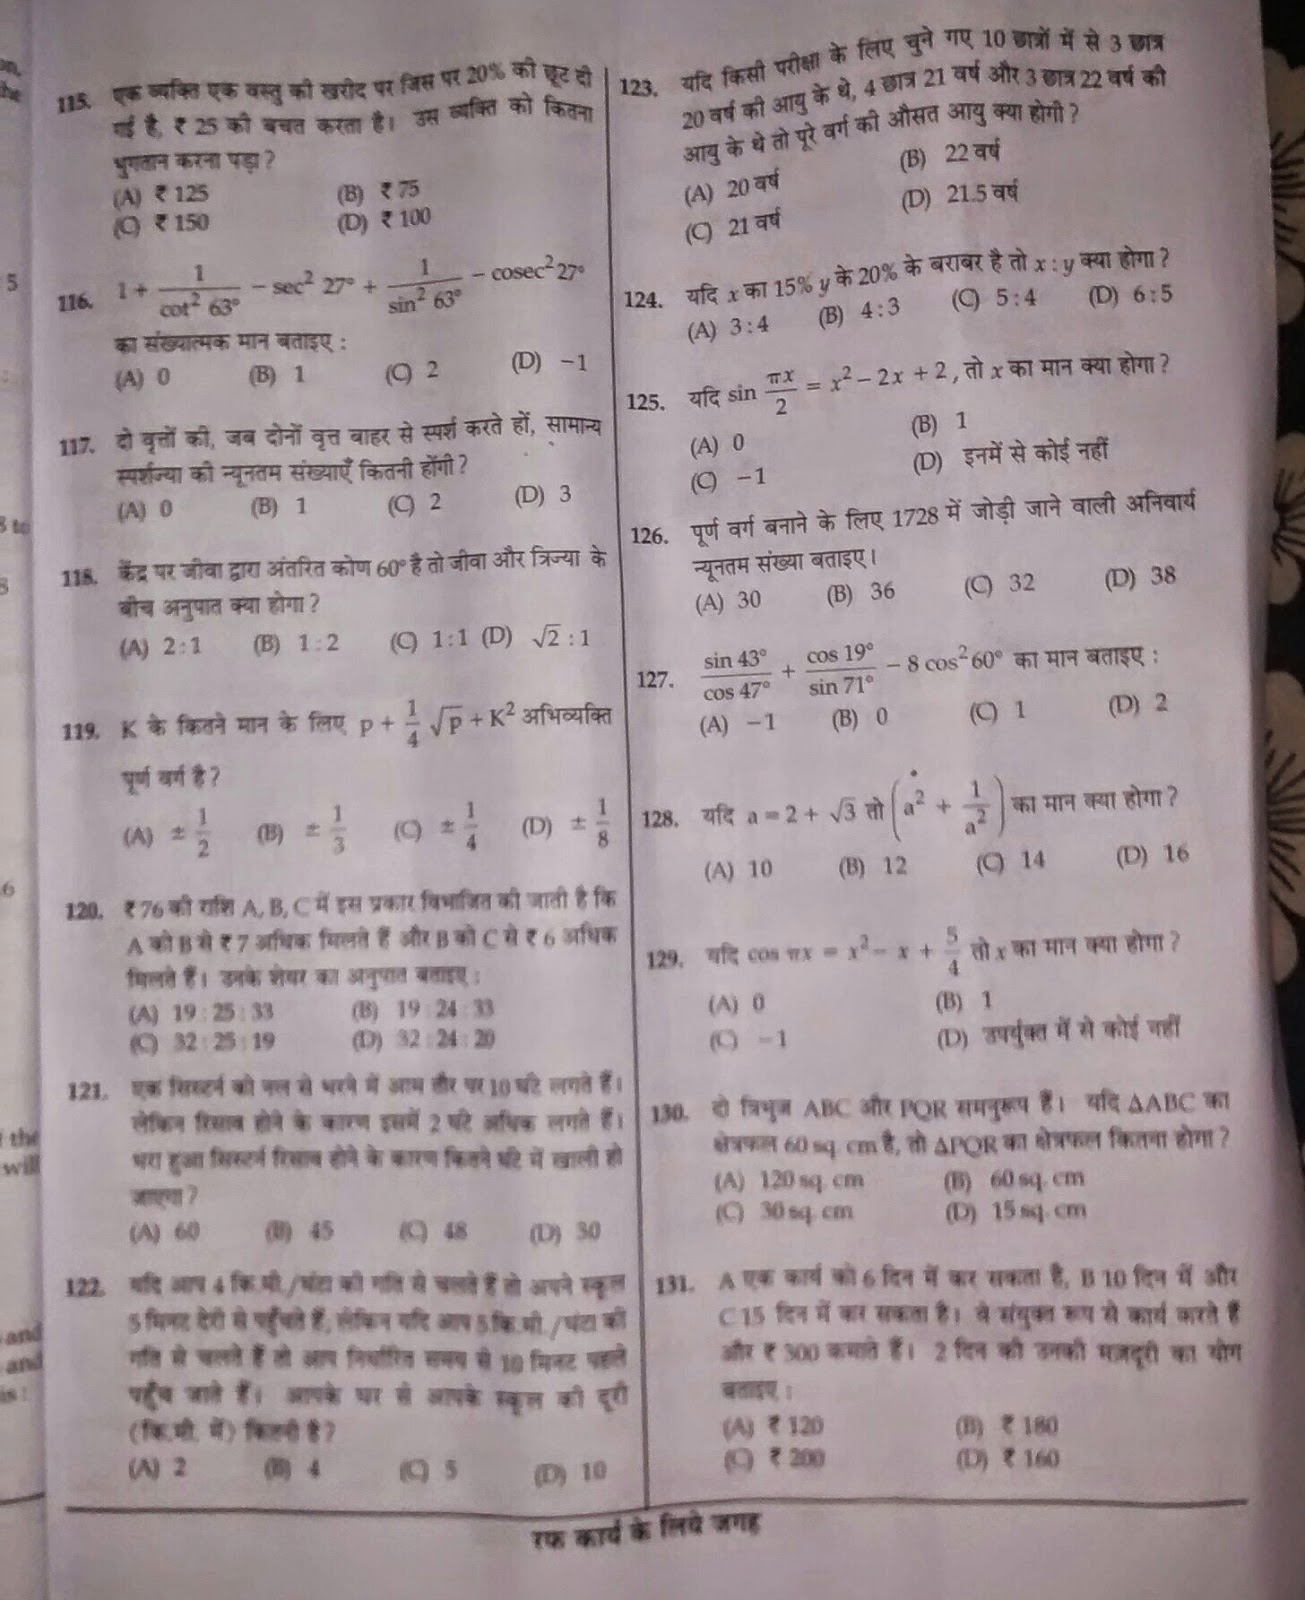 115. एक व्यक्ति एक वस्तु की खरीद पर जिस पर 20% की छूट दी
गई है, ₹ 25 की बचत करता है। उस व्यक्ति को कितना
भुगतान करना पड़ा ?
(A) ₹ 125 (B) ₹ 75
(C) ₹ 150 (D) ₹ 100
116. 1 + 1/cot² 63° − sec² 27° + 1/sin² 63° − cosec² 27°
का संख्यात्मक मान बताइए :
(A) 0 (B) 1 (C) 2 (D) −1
117. दो वृत्तों की, जब दोनों वृत्त बाहर से स्पर्श करते हों, सामान्य
स्पर्शज्या की न्यूनतम संख्याएँ कितनी होंगी ?
(A) 0 (B) 1 (C) 2 (D) 3
118. केंद्र पर जीवा द्वारा अंतरित कोण 60° है तो जीवा और त्रिज्या के
बीच अनुपात क्या होगा ?
(A) 2 : 1 (B) 1 : 2 (C) 1 : 1 (D) √2 : 1
119. K के कितने मान के लिए p + 1/4 √p + K² अभिव्यक्ति
पूर्ण वर्ग है ?
(A) ± 1/2 (B) ± 1/3 (C) ± 1/4 (D) ± 1/8
120. ₹ 76 की राशि A, B, C में इस प्रकार विभाजित की जाती है कि
A को B से ₹ 7 अधिक मिलते हैं और B को C से ₹ 6 अधिक
मिलते हैं। उनके शेयर का अनुपात बताइए :
(A) 19 : 25 : 33 (B) 19 : 24 : 33
(C) 32 : 25 : 19 (D) 32 : 24 : 20
121. एक सिस्टर्न को नल से भरने में आम तौर पर 10 घंटे लगते हैं।
लेकिन रिसाव होने के कारण इसमें 2 घंटे अधिक लगते हैं।
भरा हुआ सिस्टर्न रिसाव होने के कारण कितने घंटे में खाली हो
जाएगा ?
(A) 60 (B) 45 (C) 48 (D) 30
122. यदि आप 4 कि.मी./घंटा की गति से चलते हैं तो अपने स्कूल
5 मिनट देरी से पहुँचते हैं, लेकिन यदि आप 5 कि.मी./घंटा की
गति से चलते हैं तो आप निर्धारित समय से 10 मिनट पहले
पहुँच जाते हैं। आपके घर से आपके स्कूल की दूरी
(कि.मी. में) कितनी है ?
(A) 2 (B) 4 (C) 5 (D) 10
123. यदि किसी परीक्षा के लिए चुने गए 10 छात्रों में से 3 छात्र
20 वर्ष की आयु के थे, 4 छात्र 21 वर्ष और 3 छात्र 22 वर्ष की
आयु के थे तो पूरे वर्ग की औसत आयु क्या होगी ?
(A) 20 वर्ष (B) 22 वर्ष
(C) 21 वर्ष (D) 21.5 वर्ष
124. यदि x का 15% y के 20% के बराबर है तो x : y क्या होगा ?
(A) 3 : 4 (B) 4 : 3 (C) 5 : 4 (D) 6 : 5
125. यदि sin πx/2 = x² − 2x + 2, तो x का मान क्या होगा ?
(A) 0 (B) 1
(C) −1 (D) इनमें से कोई नहीं
126. पूर्ण वर्ग बनाने के लिए 1728 में जोड़ी जाने वाली अनिवार्य
न्यूनतम संख्या बताइए।
(A) 30 (B) 36 (C) 32 (D) 38
127. sin 43°/cos 47° + cos 19°/sin 71° − 8 cos² 60° का मान बताइए :
(A) −1 (B) 0 (C) 1 (D) 2
128. यदि a = 2 + √3 तो (a² + 1/a²) का मान क्या होगा ?
(A) 10 (B) 12 (C) 14 (D) 16
129. यदि cos πx = x² − x + 5/4 तो x का मान क्या होगा ?
(A) 0 (B) 1
(C) −1 (D) उपर्युक्त में से कोई नहीं
130. दो त्रिभुज ABC और PQR समनुरूप हैं। यदि ΔABC का
क्षेत्रफल 60 sq. cm है, तो ΔPQR का क्षेत्रफल कितना होगा ?
(A) 120 sq. cm (B) 60 sq. cm
(C) 30 sq. cm (D) 15 sq. cm
131. A एक कार्य को 6 दिन में कर सकता है, B 10 दिन में और
C 15 दिन में कर सकता है। वे संयुक्त रूप से कार्य करते हैं
और ₹ 300 कमाते हैं। 2 दिन की उनकी मजदूरी का योग
बताइए :
(A) ₹ 120 (B) ₹ 180
(C) ₹ 200 (D) ₹ 160
रफ कार्य के लिये जगह